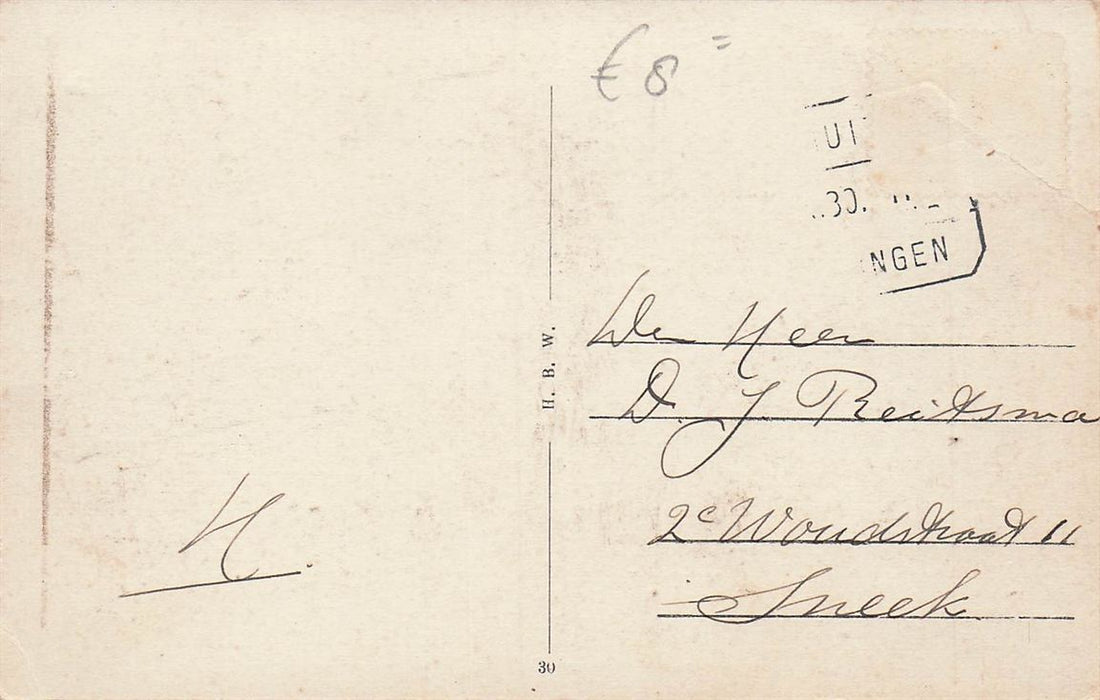 € 8 =
UI
.30.
NGEN
H. B. W.
Den Heer
D. J. Reitsma
2e Woudstraat 11
Sneek
H.
30